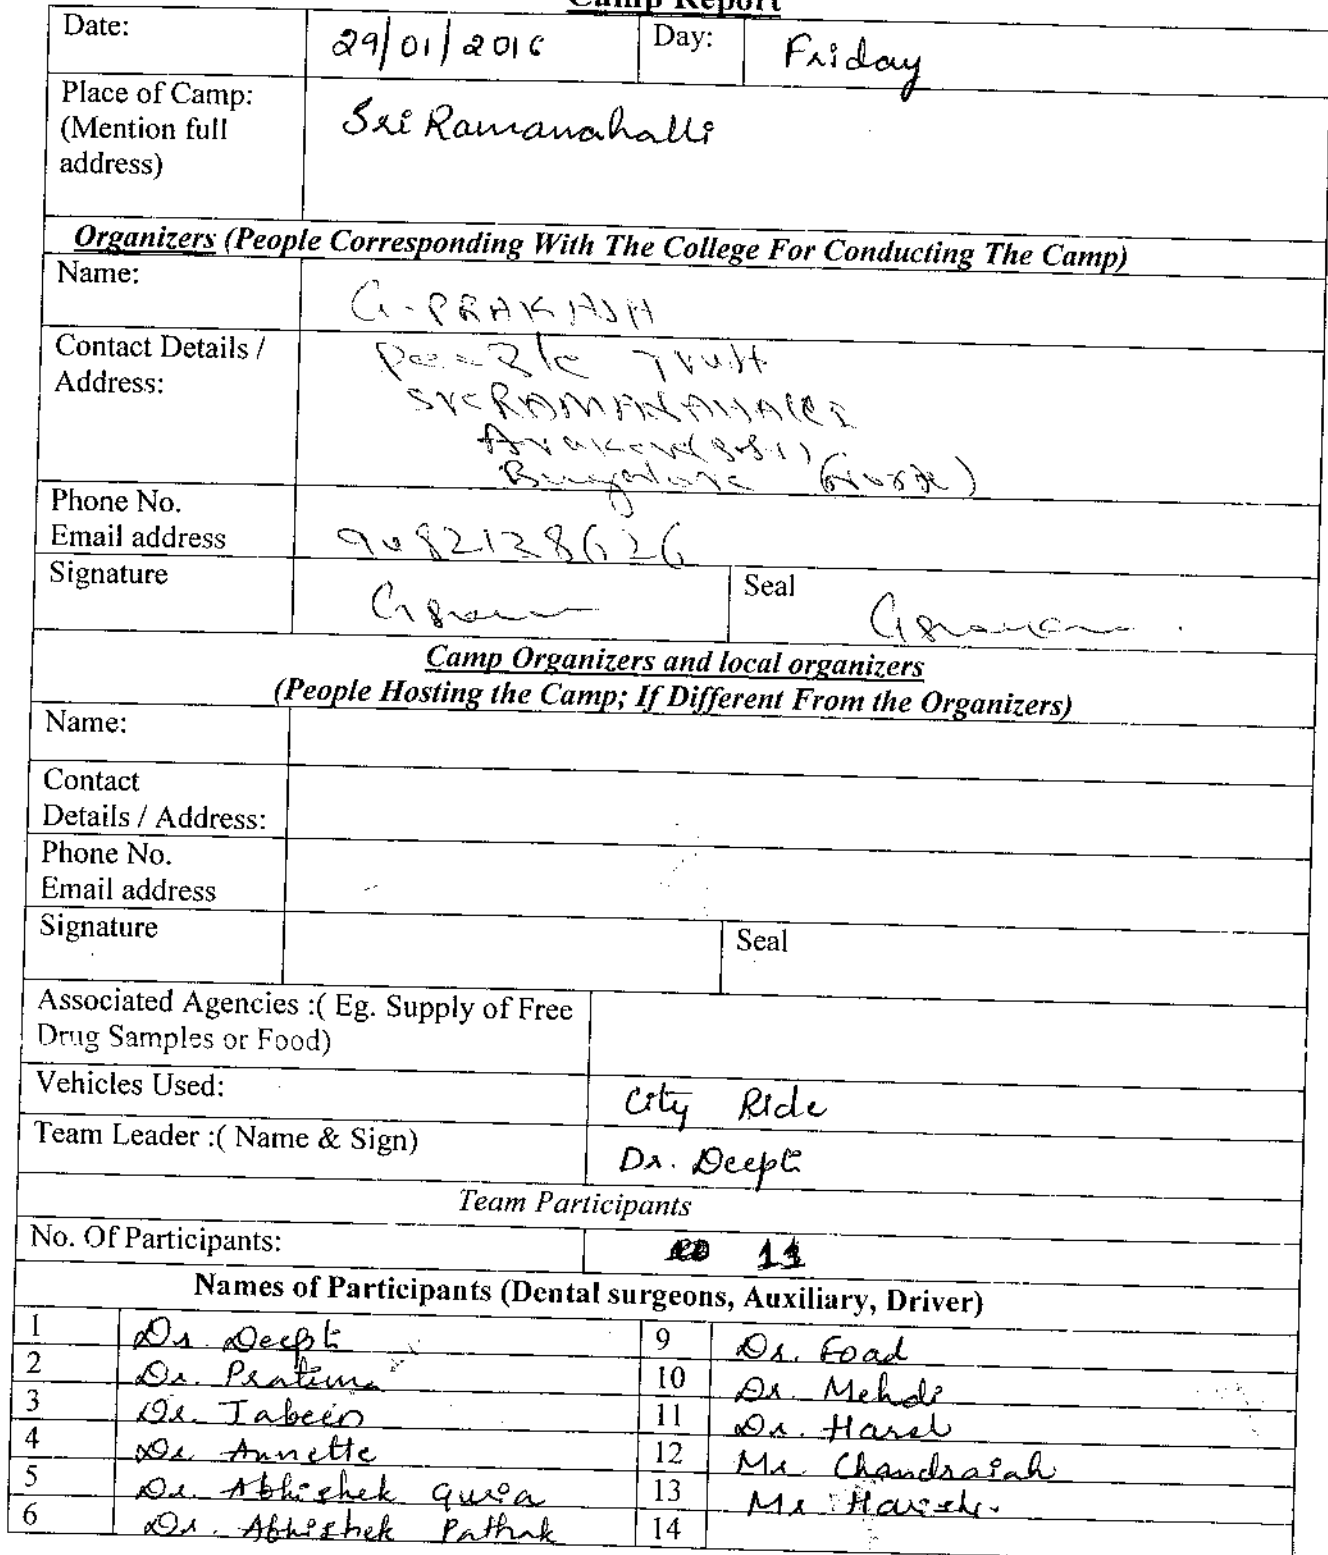 Camp Report
Date: 29/01/2016 Day: Friday
Place of Camp: Sri Ramanahalli
(Mention full
address)
Organizers (People Corresponding With The College For Conducting The Camp)
Name: G. PRAKASH
Contact Details / People Trust
Address: SriRAMANAHALLI
Bangalore
Phone No.
Email address 9082128626
Signature Seal
Camp Organizers and local organizers
(People Hosting the Camp; If Different From the Organizers)
Name:
Contact
Details / Address:
Phone No.
Email address
Signature Seal
Associated Agencies :( Eg. Supply of Free
Drug Samples or Food)
Vehicles Used: City Ride
Team Leader :( Name & Sign) Dr. Deepti
Team Participants
No. Of Participants: 11
Names of Participants (Dental surgeons, Auxiliary, Driver)
1 Dr. Deepti 9 Dr. Foad
2 Dr. Pratima 10 Dr. Mehdi
3 Dr. Jabeen 11 Dr. Harsh
4 Dr. Annette 12 Mr. Chandraiah
5 Dr. Abhishek Guria 13 Mr Harish.
6 Dr. Abhishek Pathak 14